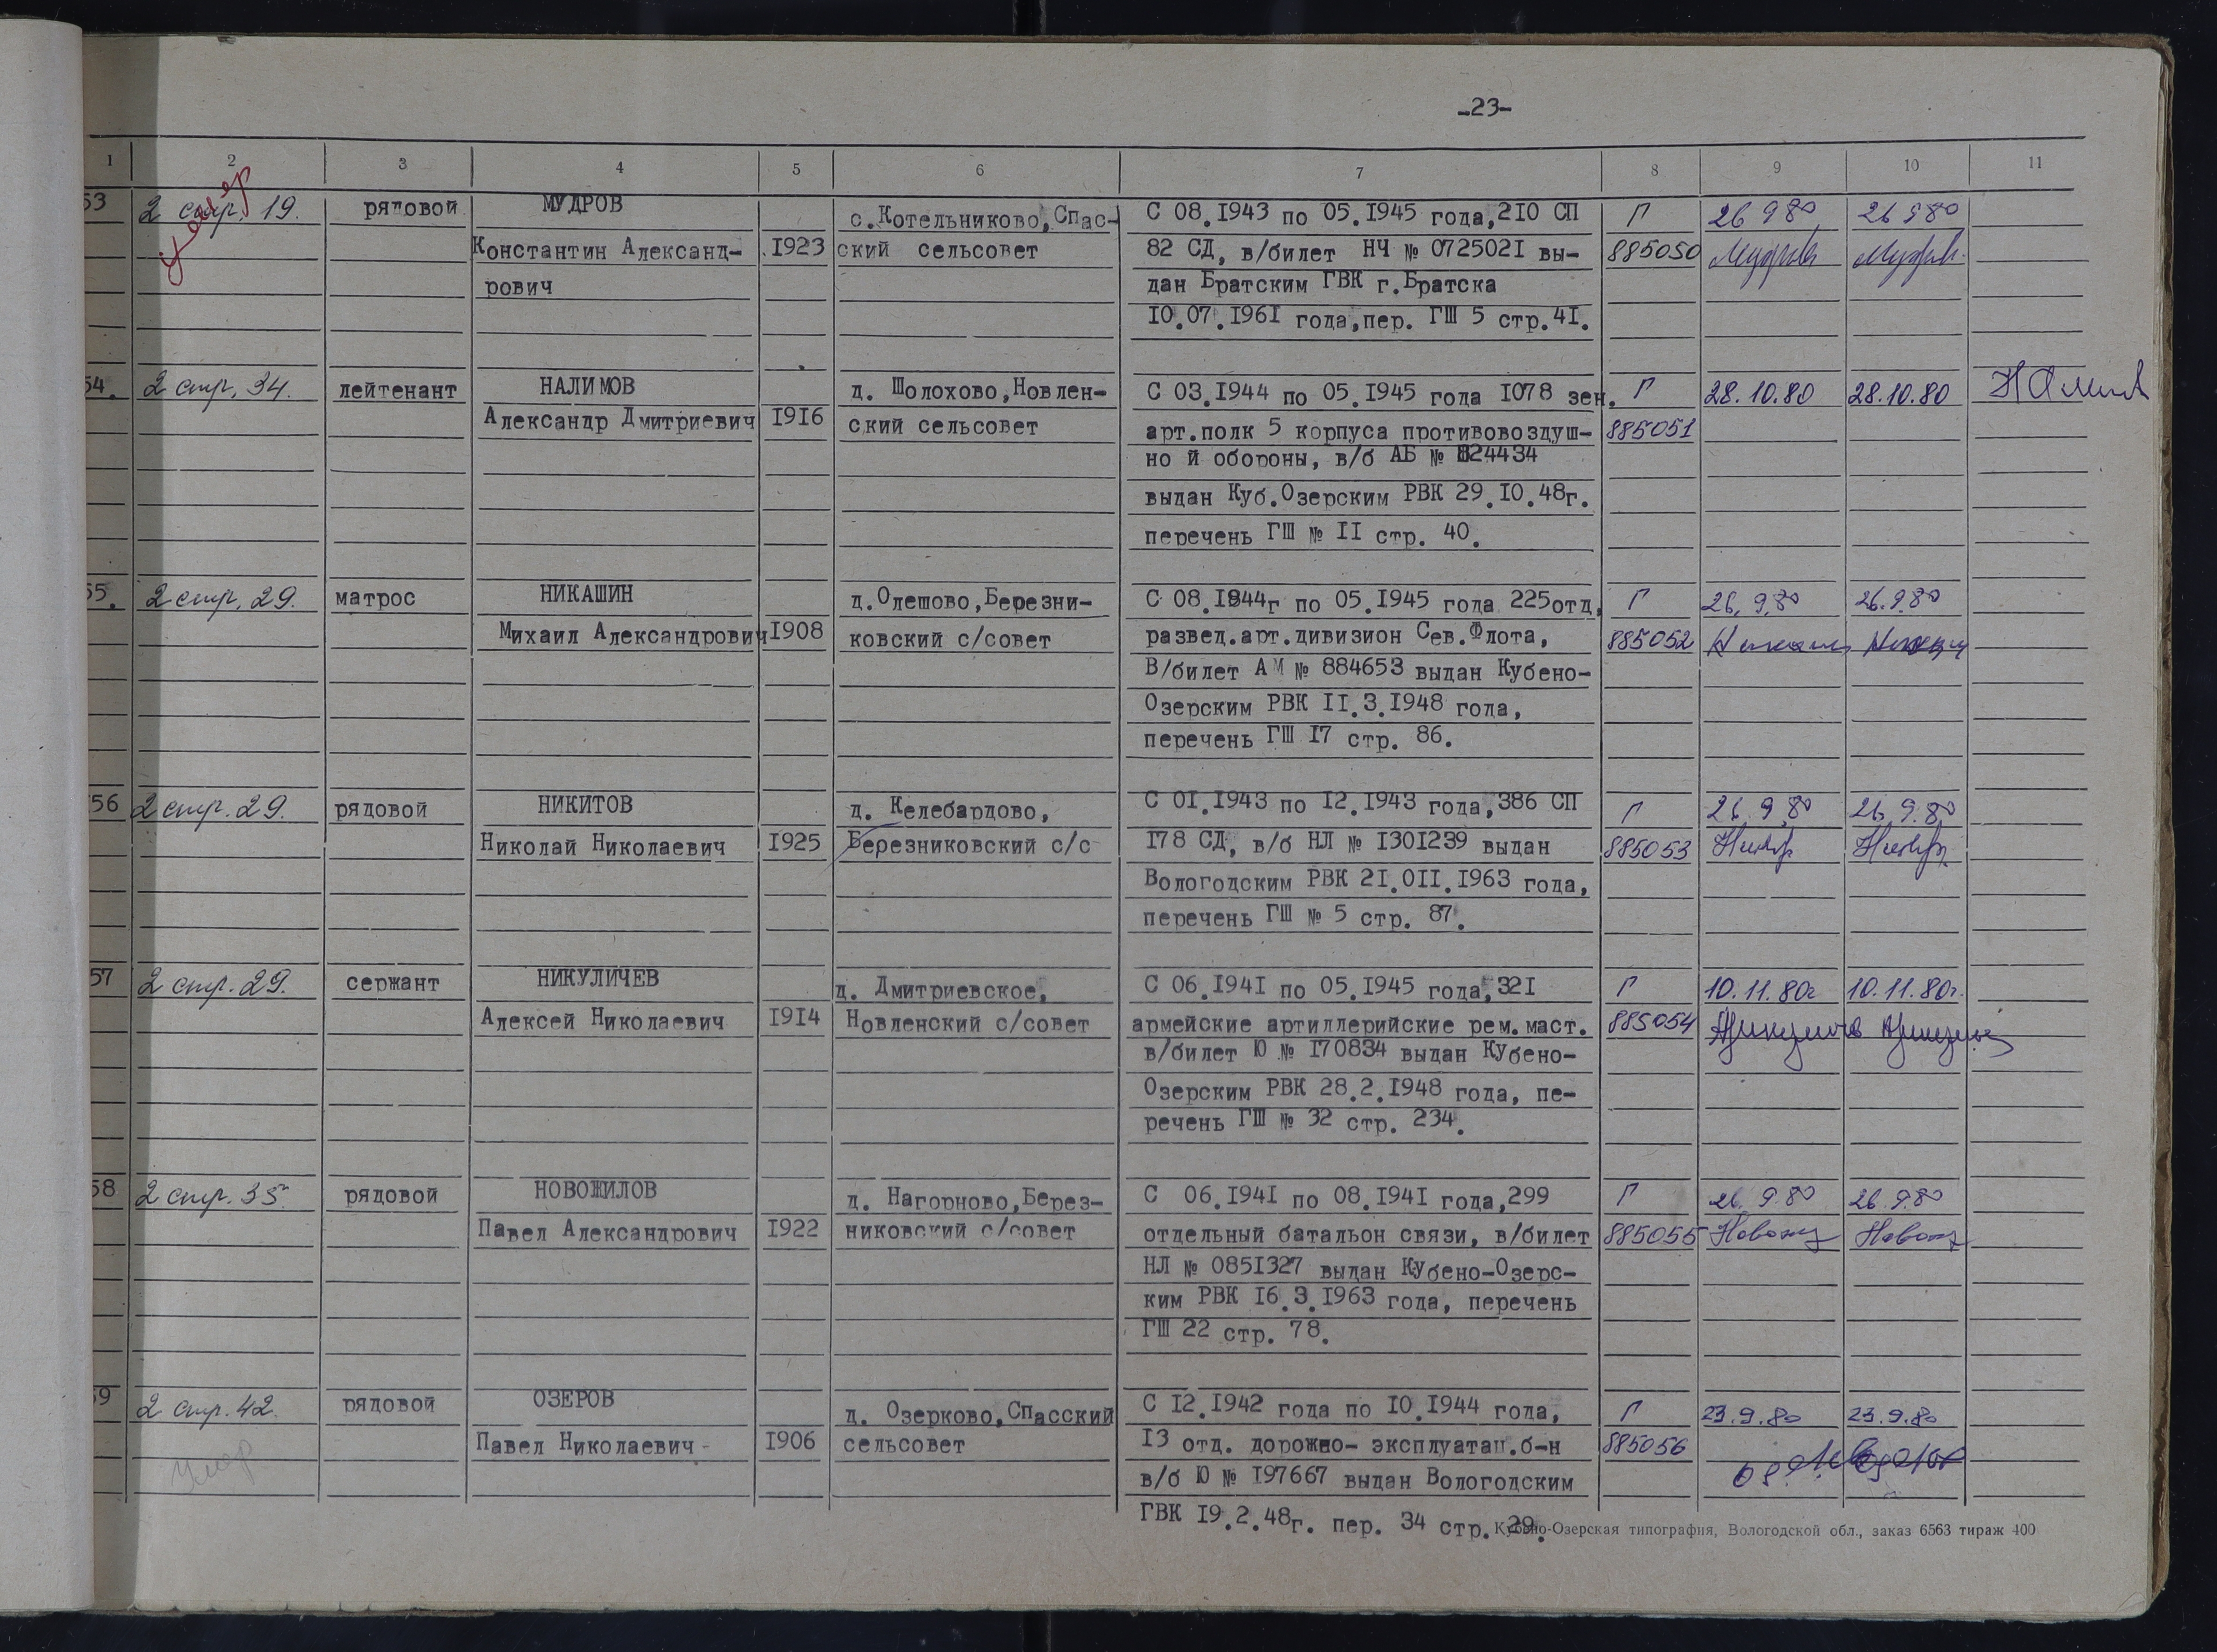 -23-
1 2 3 4 5 6 7 8 9 10 11
53 2 стр. 19. рядовой МУДРОВ с.Котельниково, Спас- С 08.1943 по 05.1945 года,210 СП Г 26 9 80 26 9 80
умер
Константин Александ- 1923 ский сельсовет 82 СД, в/билет НЧ № 0725021 вы- 885050 Мудров Мудров
рович дан Братским ГВК г.Братска
10.07.1961 года,пер. ГШ 5 стр.41.
54. 2 стр. 34. лейтенант НАЛИМОВ д. Шолохово,Новлен- С 03.1944 по 05.1945 года 1078 зен. Г 28.10.80 28.10.80
Александр Дмитриевич 1916 ский сельсовет арт.полк 5 корпуса противовоздуш- 885051
но й обороны, в/б АБ № 24434
выдан Куб.Озерским РВК 29.10.48г.
перечень ГШ № II стр. 40.
55. 2 стр. 29. матрос НИКАШИН д.Олешово,Березни- С 08.1944г по 05.1945 года 225отд. Г 26.9.80 26.9.80
Михаил Александрович 1908 ковский с/совет развед.арт.дивизион Сев.Флота, 885052
В/билет АМ № 884653 выдан Кубено-
Озерским РВК II.3.1948 года,
перечень ГШ 17 стр. 86.
56 2 стр. 29. рядовой НИКИТОВ д. Келебардово, С 01.1943 по 12.1943 года,386 СП Г 26.9.80 26.9.80
Николай Николаевич 1925 Березниковский с/с 178 СД, в/б НЛ № 1301239 выдан 885053
Вологодским РВК 21.0II.1963 года,
перечень ГШ № 5 стр. 87.
57 2 стр. 29. сержант НИКУЛИЧЕВ д. Дмитриевское, С 06.1941 по 05.1945 года,321 Г 10.11.80г 10.11.80г.
Алексей Николаевич 1914 Новленский с/совет армейские артиллерийские рем.маст. 885054
в/билет Ю № 170834 выдан Кубено-
Озерским РВК 28.2.1948 года, пе-
речень ГШ № 32 стр. 234.
58 2 стр. 35. рядовой НОВОЖИЛОВ д. Нагорново,Берез- С 06.1941 по 08.1941 года,299 Г 26.9.80 26.9.80
Павел Александрович 1922 никовский с/совет отдельный батальон связи, в/билет 885055
НЛ № 0851327 выдан Кубено-Озерс-
ким РВК 16.3.1963 года, перечень
ГШ 22 стр. 78.
59 2 стр. 42. рядовой ОЗЕРОВ д. Озерково,Спасский С 12.1942 года по 10.1944 года, Г 23.9.80 23.9.80
Павел Николаевич- 1906 сельсовет 13 отд. дорожно- эксплуатац.б-н 885056
умер в/б Ю № 197667 выдан Вологодским
ГВК 19.2.48г. пер. 34 стр. 29.
Кубено-Озерская типография, Вологодской обл., заказ 6563 тираж 400